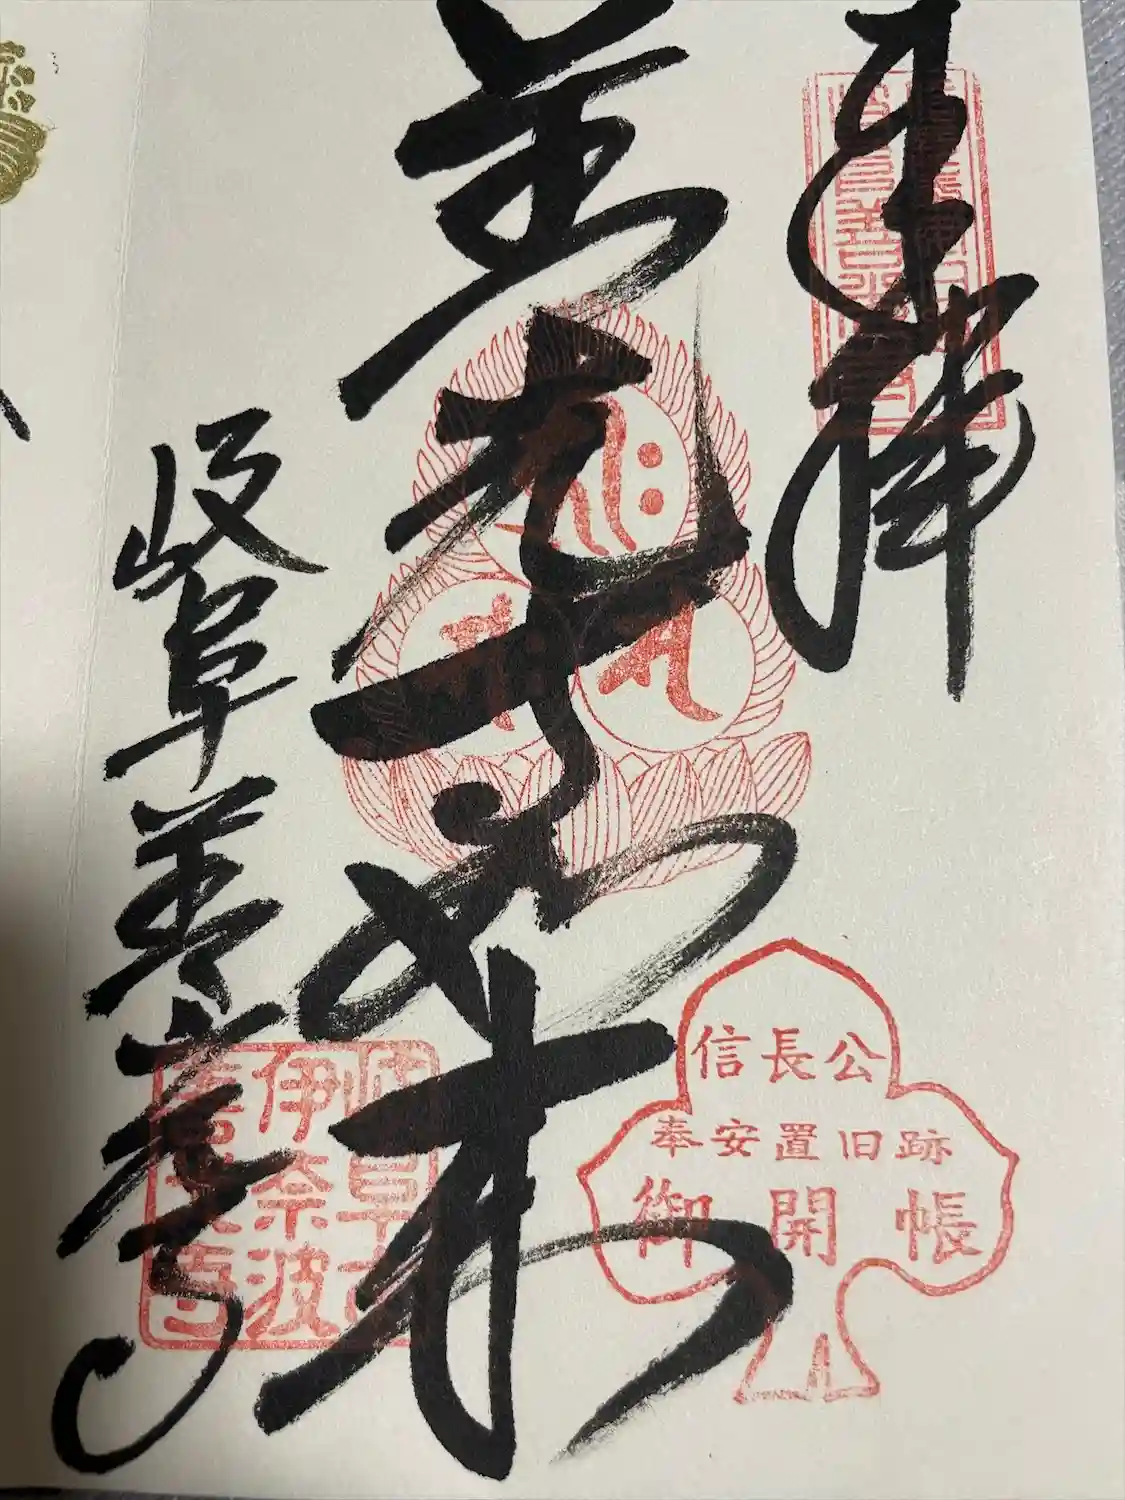 奉拝
善光寺如来
岐阜善光寺
信長公
奉安置旧跡
御開帳
岐阜市
伊奈波
善光寺